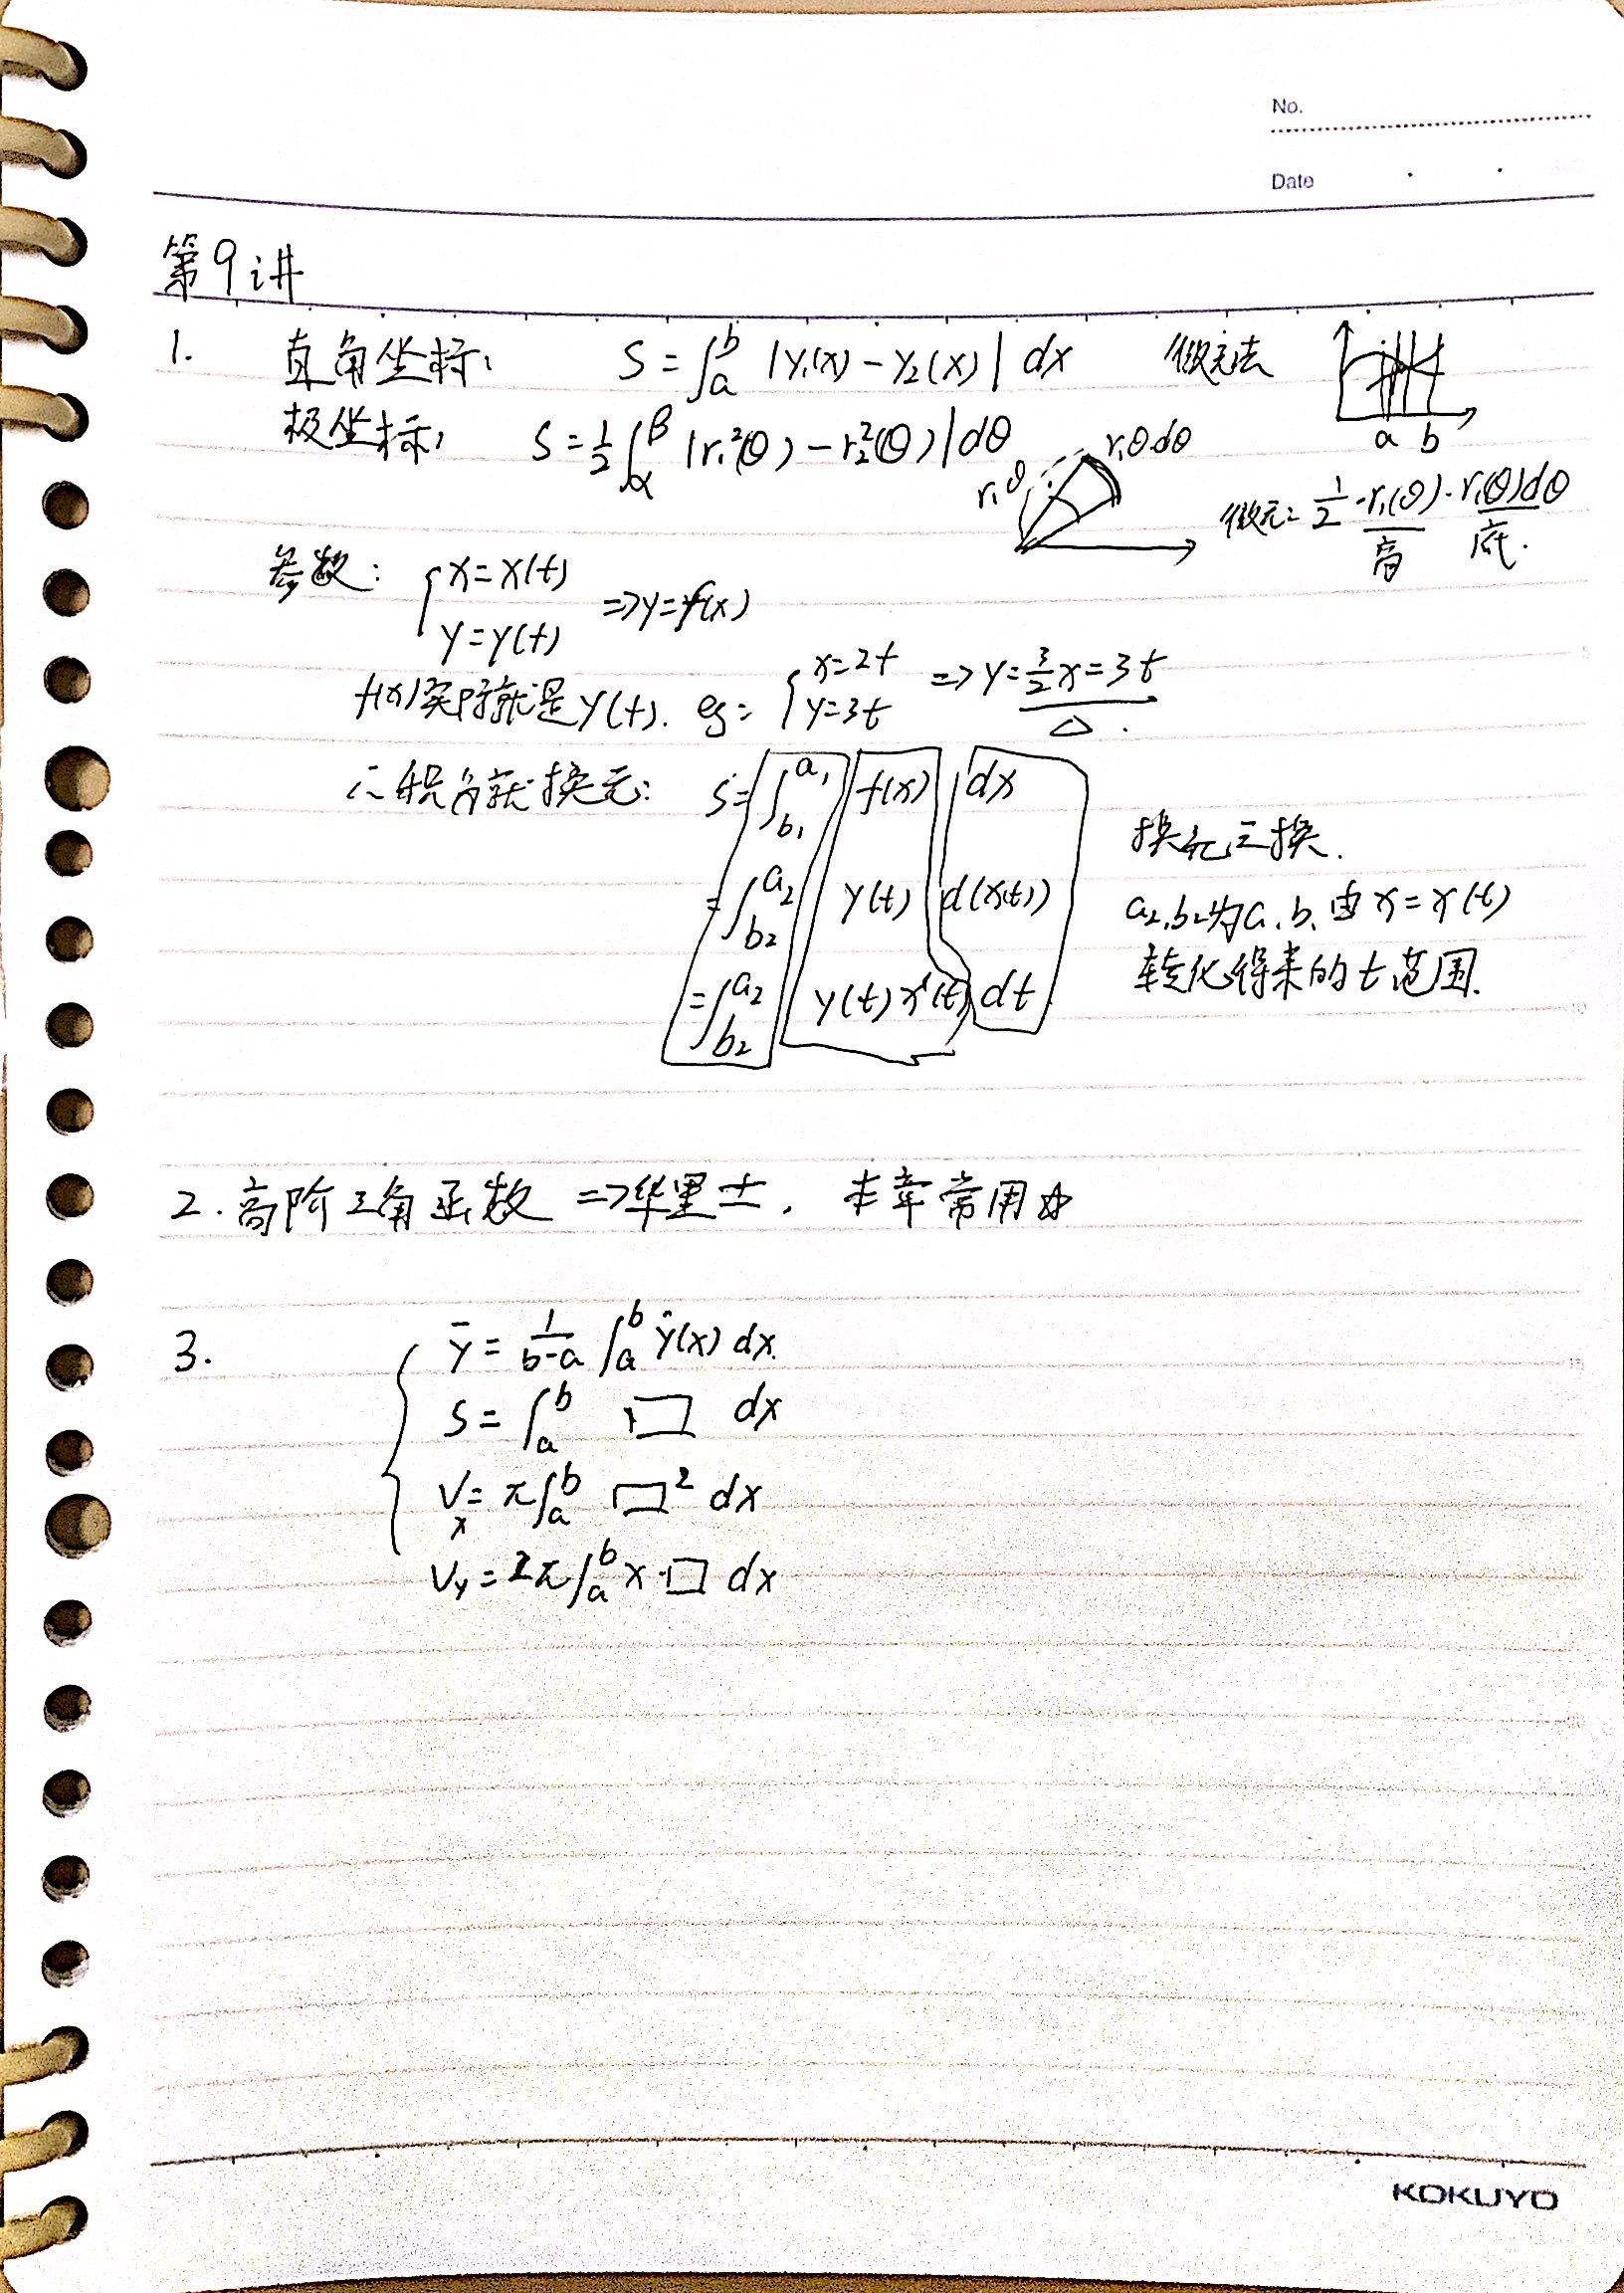 No.
Date
第9讲
1. 直角坐标: S = ∫_a^b |y₁(x) - y₂(x)| dx 微元法
a b
极坐标: S = 1/2 ∫_α^β |r₁²(θ) - r₂²(θ)| dθ
r₁θ r₁θdθ
微元: 1/2 · r₁(θ) · r₁(θ)dθ
高 底.
参数: { x = x(t)
y = y(t) ⇒ y = f(x)
f(x)实际就是y(t). eg: { x = 2t
y = 3t ⇒ y = 3/2 x = 3t
∴积分就换元: S = ∫_{b₁}^{a₁} f(x) dx
= ∫_{b₂}^{a₂} y(t) d(x(t))
= ∫_{b₂}^{a₂} y(t) x'(t) dt
换元三换.
a₂,b₂为a₁b₁由x = x(t)
转化得来的t范围.
2. 高阶三角函数 ⇒ 华里士, 本章常用☆
3. { ȳ = 1/(b-a) ∫_a^b y(x) dx.
S = ∫_a^b □ dx
V_x = π∫_a^b □² dx
V_y = 2π∫_a^b x·□ dx
KOKUYO